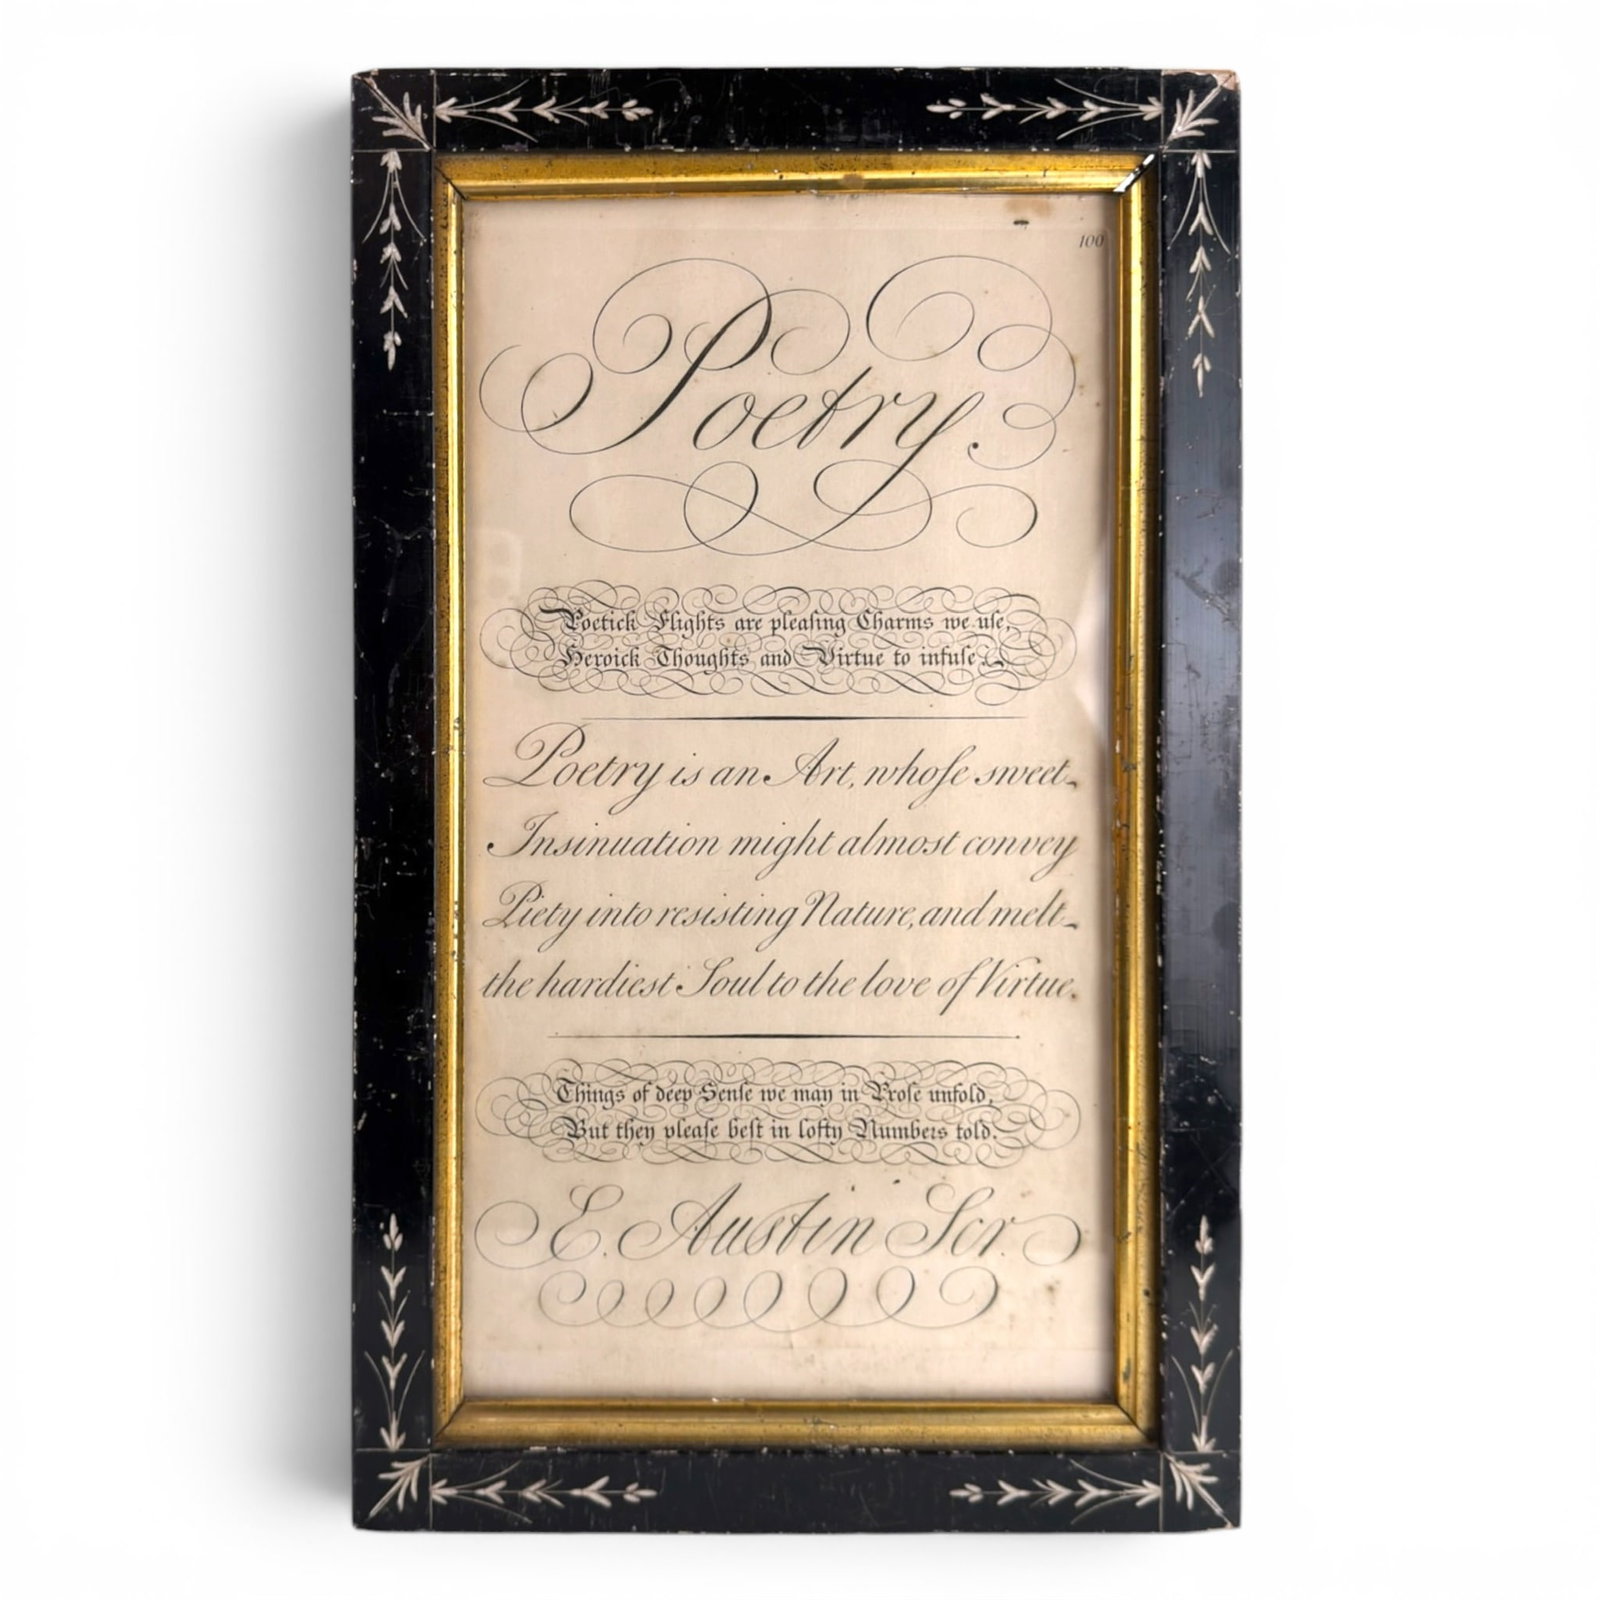 100
Poetry.
Poetick Flights are pleaſing Charms we uſe,
Heroick Thoughts and Virtue to infuſe.
Poetry is an Art, whoſe sweet
Insinuation might almost convey
Piety into resisting Nature, and melt
the hardiest Soul to the love of Virtue.
Things of deep Senſe we may in Proſe unfold,
But they pleaſe beſt in lofty Numbers told.
E. Austin Scr.